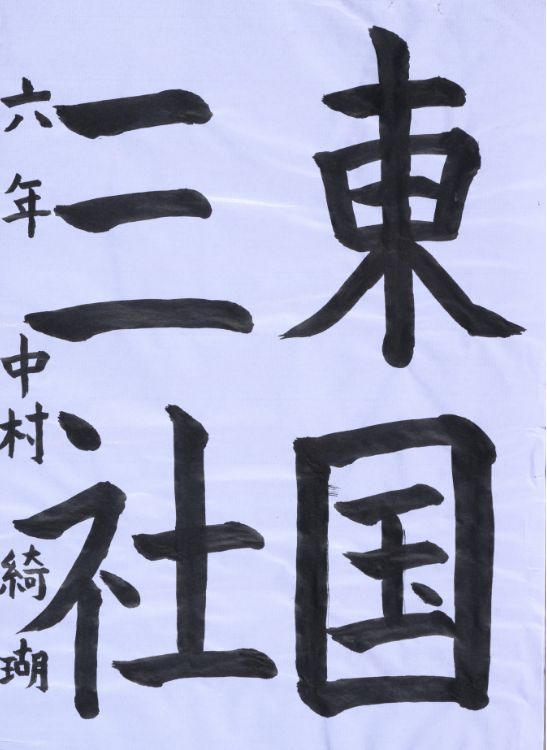 東国
三社
六年 中村 綺瑚